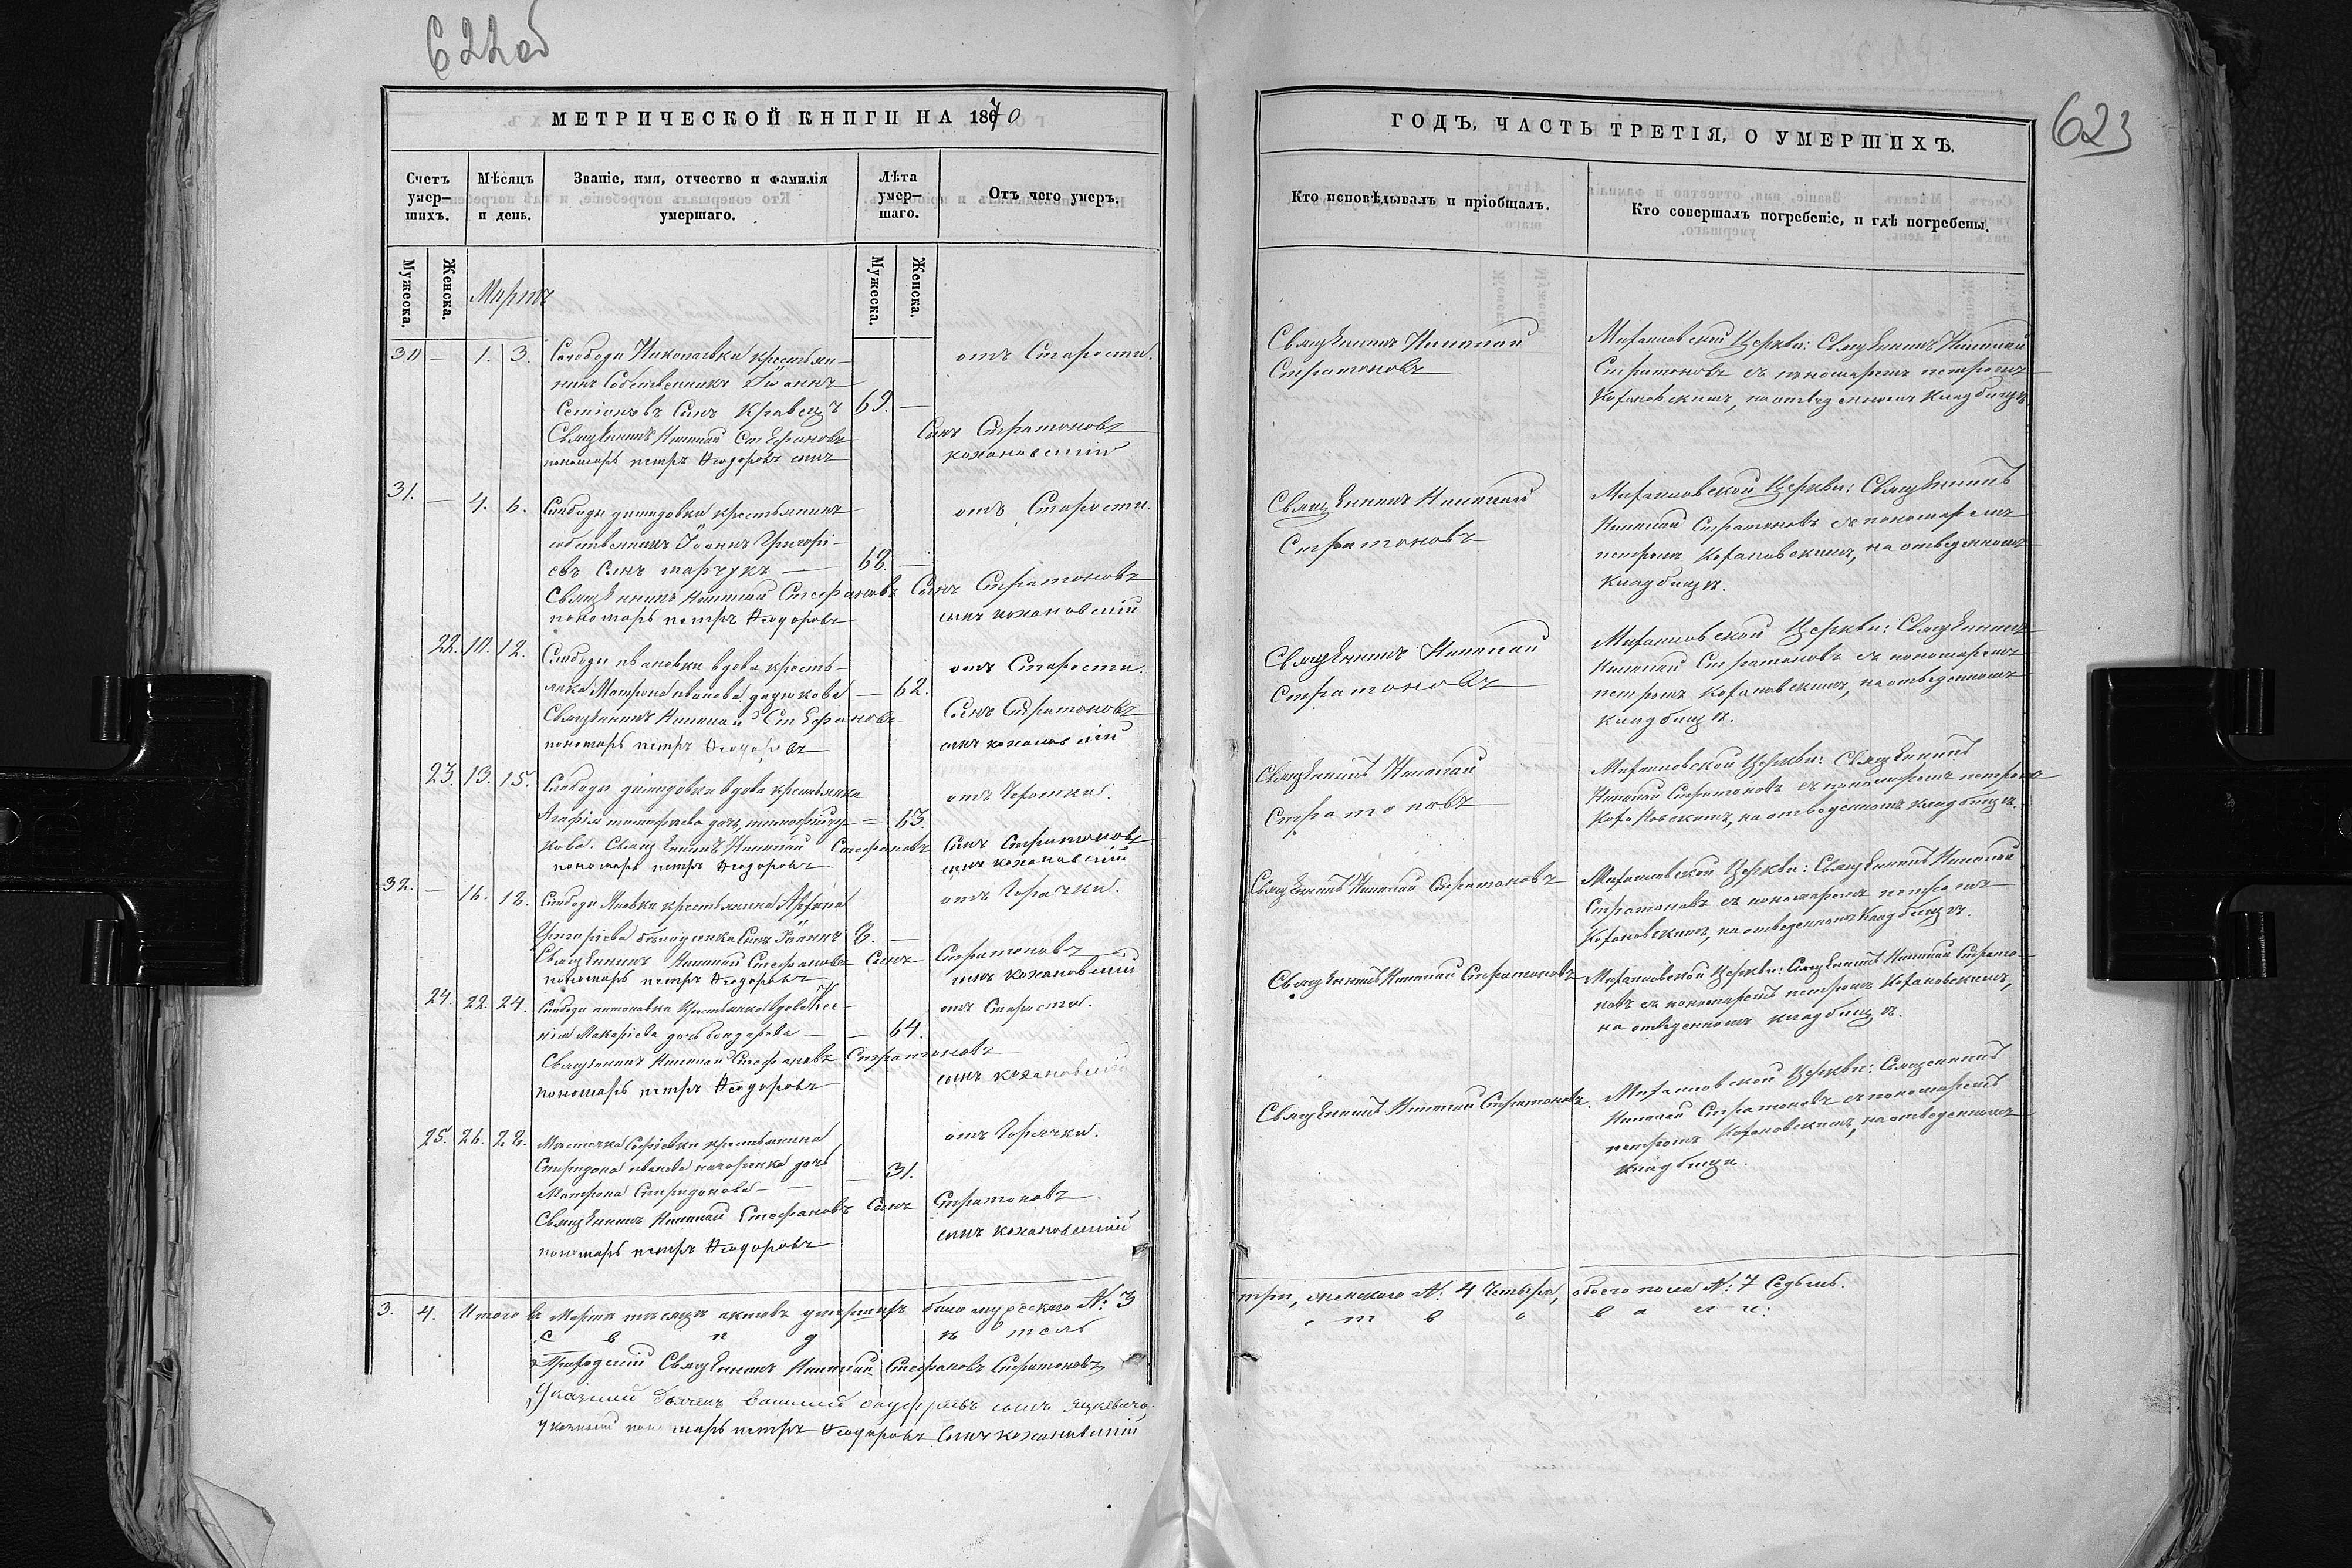 622об
МЕТРИЧЕСКОЙ КНИГИ НА 1870
Счетъ умер-шихъ.
Мѣсяцъ и день.
Званіе, имя, отчество и фамилія умершаго.
Лѣта умер-шаго.
Отъ чего умеръ.
Мужеска.
Женска.
Мартъ
Мужеска.
Женска.
30 — 1. 3. Слободы Николаевки крестьян-
нинъ собственникъ Іоаннъ
Семіоновъ Сынъ Кравецъ 69. —
отъ Старости.
Священникъ Николай Стефановъ Сынъ Стратоновъ
пономарь петръ Ѳеодоровъ сынъ кохановскій
31. — 4. 6. Слободы демидовки крестьянинъ
собственникъ Іоаннъ Григорі-
евъ Сынъ марчукъ — 68. —
отъ Старости.
Священникъ Николай Стефановъ Сынъ Стратоновъ
пономарь петръ Ѳеодоровъ сынъ кохановскій
22. 10. 12. Слободы ивановки вдова кресть-
янка Матрона иванова — 62.
отъ Старости.
Священникъ Николай Стефановъ Сынъ Стратоновъ
пономарь петръ Ѳеодоровъ сынъ кохановскій
23. 13. 15. Слободы демидовки вдова крестьянка
Агафія тимофеева дочь = 63.
кова. Священникъ Николай Стефановъ Сынъ Стратоновъ
пономарь петръ Ѳеодоровъ сынъ кохановскій
32. — 16. 18. Слободы Яновки крестьянина
Григоріева Сынъ Іоаннъ 8. —
отъ Горячки.
Священникъ Николай Стефановъ Сынъ Стратоновъ
пономарь петръ Ѳеодоровъ сынъ кохановскій
24. 22. 24. Слободы антоновки Крестьянка вдова Ксе-
нія Макаріева дочь бондарева — — 64.
отъ Старости.
Священникъ Николай Стефановъ Стратоновъ
пономарь петръ Ѳеодоровъ сынъ кохановскій
25. 26. 28. Мѣстечка Софіевки крестьянина
Спиридона иванова дочь
Матрона Спиридонова — — 31.
отъ Горячки.
Священникъ Николай Стефановъ Сынъ Стратоновъ
пономарь петръ Ѳеодоровъ сынъ кохановскій
3. 4. Итого въ Мартѣ мѣсяцѣ актовъ умершихъ было мужескаго №: 3
Приходскій Священникъ Николай Стефановъ Стратоновъ
Указный василій сынъ
указный пономарь петръ Ѳеодоровъ Сынъ кохановскій
623
ГОДЪ, ЧАСТЬ ТРЕТІЯ, О УМЕРШИХЪ.
Кто исповѣдывалъ и пріобщалъ.
Кто совершалъ погребеніе, и гдѣ погребены.
Священникъ Николай
Стратоновъ
Михайловской Церкви: Священникъ Николай
Стратоновъ съ пономаремъ петромъ
Кохановскимъ, на отведенномъ кладбищѣ.
Священникъ Николай
Стратоновъ
Михайловской Церкви: Священникъ
Николай Стратоновъ съ пономаремъ
петромъ Кохановскимъ, на отведенномъ
кладбищѣ.
Священникъ Николай
Стратоновъ
Михайловской Церкви: Священникъ
Николай Стратоновъ съ пономаремъ
петромъ Кохановскимъ, на отведенномъ
кладбищѣ.
Священникъ Николай
Стратоновъ
Михайловской Церкви: Священникъ
Николай Стратоновъ съ пономаремъ петромъ
Кохановскимъ, на отведенномъ кладбищѣ.
Священникъ Николай Стратоновъ
Михайловской Церкви: Священникъ Николай
Стратоновъ съ пономаремъ петромъ
Кохановскимъ, на отведенномъ кладбищѣ.
Священникъ Николай Стратоновъ
Михайловской Церкви: Священникъ Николай Страто-
новъ съ пономаремъ петромъ Кохановскимъ,
на отведенномъ кладбищѣ.
Священникъ Николай Стратоновъ.
Михайловской Церкви: Священникъ
Николай Стратоновъ съ пономаремъ
петромъ Кохановскимъ, на отведенномъ
кладбищѣ.
три, женскаго №: 4 Четыре, обоего пола №: 7 Седьмъ.